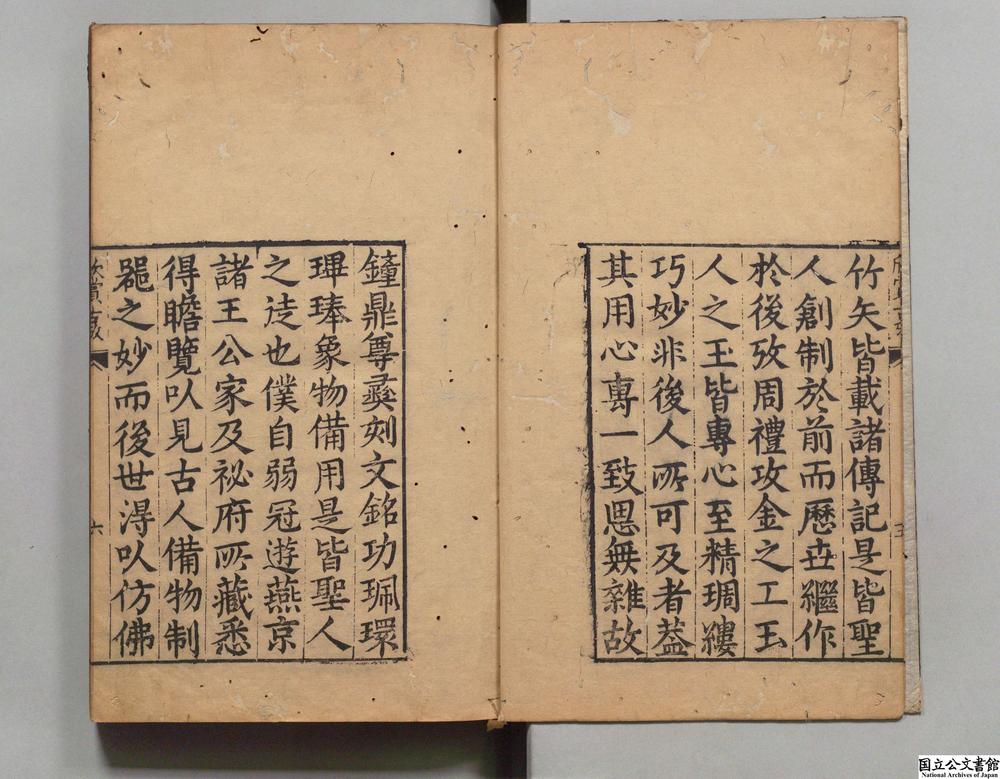 竹矢皆載諸傳記是皆聖
人創制於前而歷丗繼作
於後攷周禮攻金之工玉
人之玉皆專心至精琱鏤
巧妙非後人所可及者葢
其用心專一致思無雜故
鐘鼎尊彛刻文銘功珮環
琕琫象物備用是皆聖人
之迻也僕自弱冠遊燕京
諸王公家及祕府所藏悉
得瞻覽㕥見古人備物制
噐之妙而後世淂㕥仿佛
六
国立公文書館
National Archives of Japan